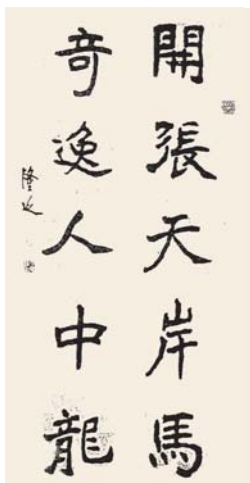 開張天岸馬
奇逸人中龍
隆延